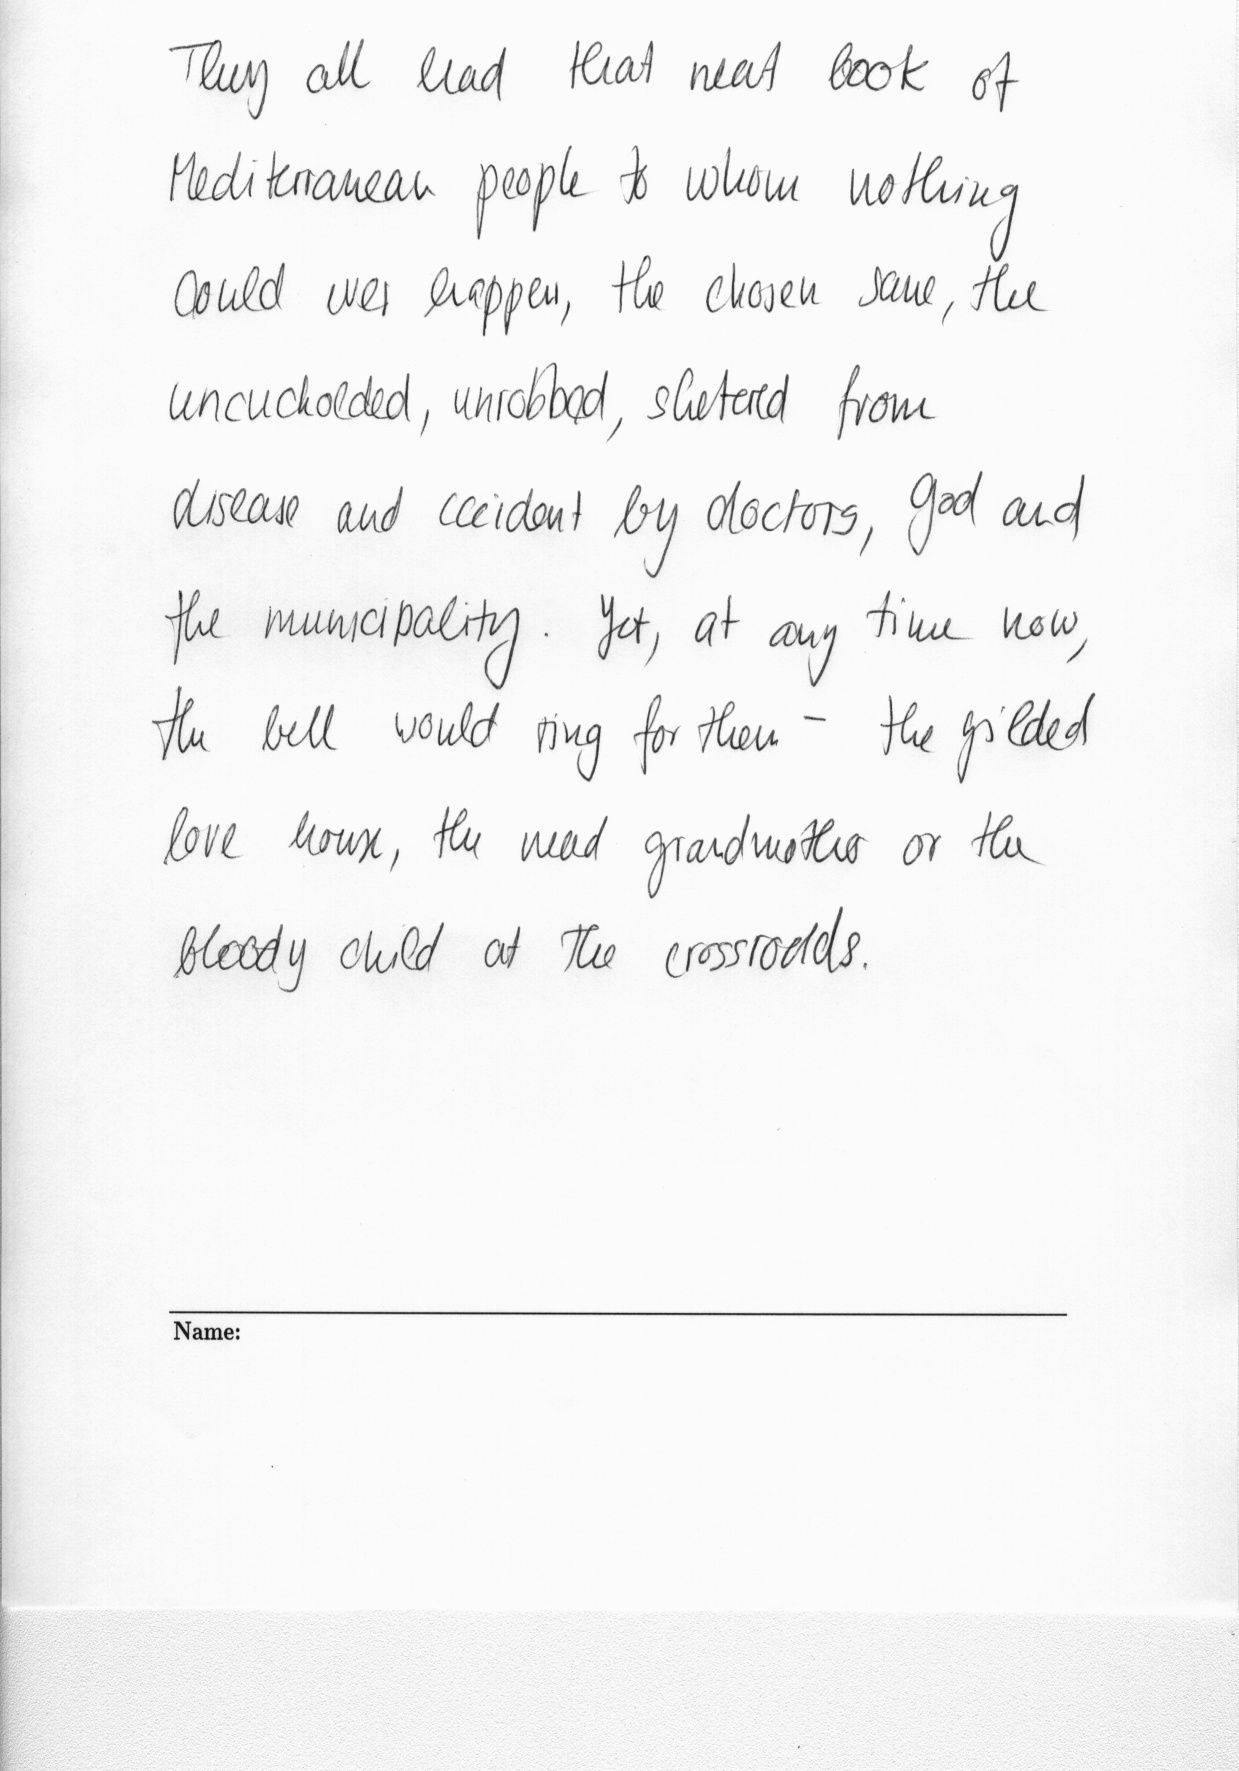 They all had that neat look of
Mediterranean people to whom nothing
could ever happen, the chosen sane, the
uncucholded, unrobbed, shetered from
disease and accident by doctors, God and
the municipality. Yet, at any time now,
the bell would ring for them - the gilded
love house, the mead grandmother or the
bloody child at the crossroads.
Name: